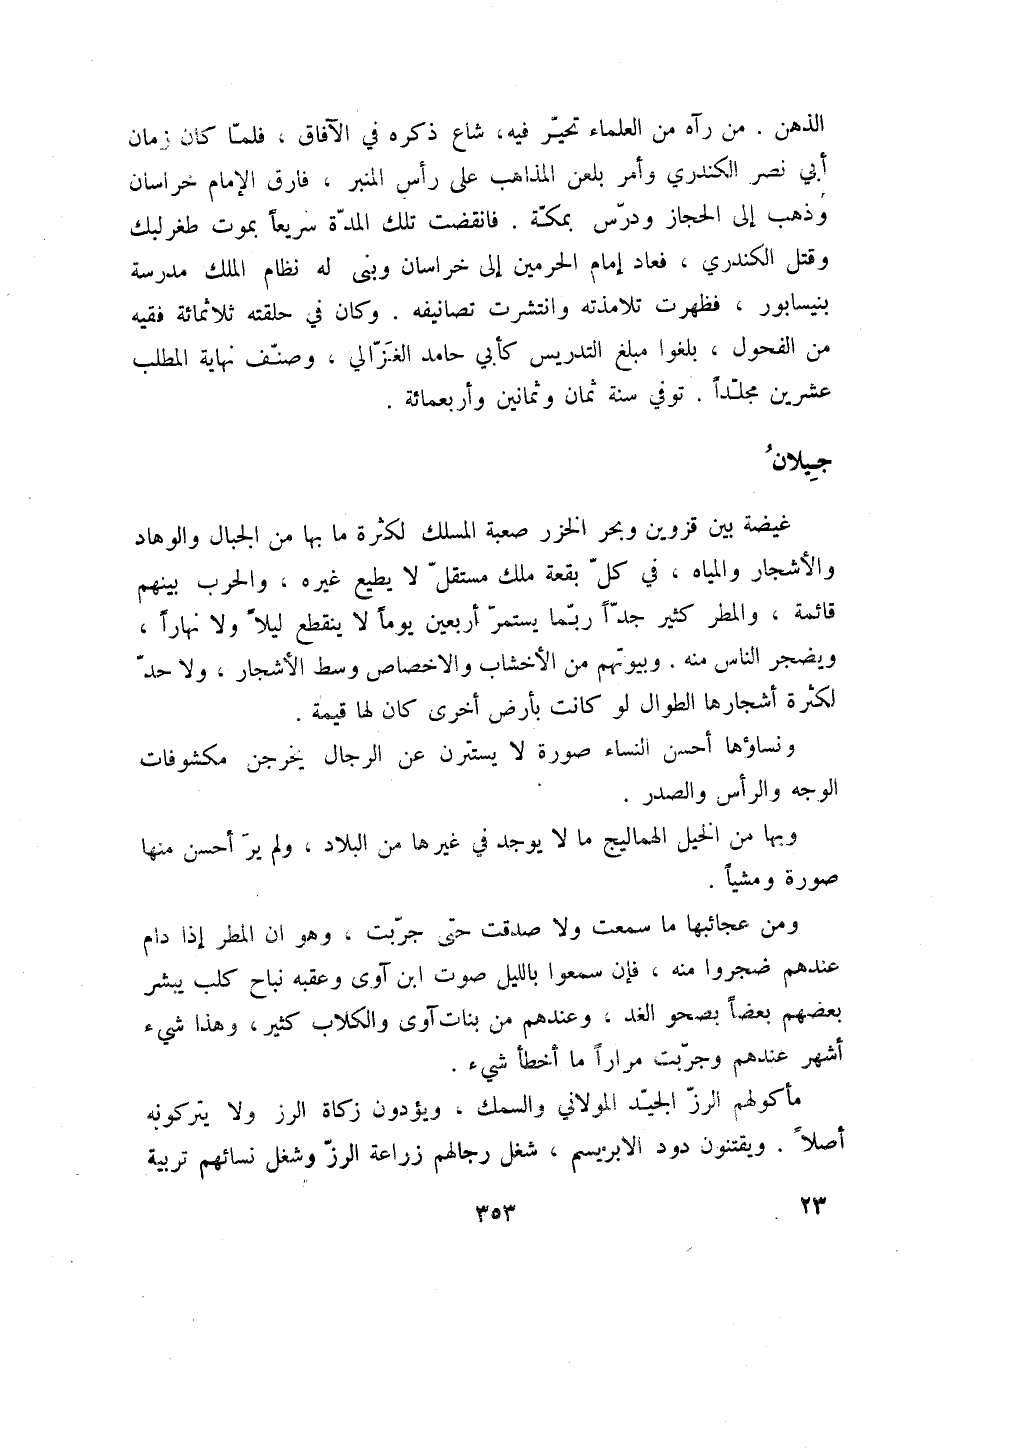 الذهن . من رآه من العلماء تحيّر فيه، شاع ذكره في الآفاق ، فلمّا كان زمان
أبي نصر الكندري وأمر بلعن المذاهب على رأس المنبر ، فارق الإمام خراسان
وذهب إلى الحجاز ودرّس بمكّة . فانقضت تلك المدّة سريعاً بموت طغرلبك
وقتل الكندري ، فعاد إمام الحرمين إلى خراسان وبنى له نظام الملك مدرسة
بنيسابور ، فظهرت تلامذته وانتشرت تصانيفه . وكان في حلقته ثلاثمائة فقيه
من الفحول ، بلغوا مبلغ التدريس كأبي حامد الغَزّالي ، وصنّف نهاية المطلب
عشرين مجلّداً . توفي سنة ثمان وثمانين وأربعمائة .
جِيلانُ
غيضة بين قزوين وبحر الخزر صعبة المسلك لكثرة ما بها من الجبال والوهاد
والأشجار والمياه ، في كلّ بقعة ملك مستقلّ لا يطيع غيره ، والحرب بينهم
قائمة ، والمطر كثير جدّاً ربّما يستمرّ أربعين يوماً لا ينقطع ليلاً ولا نهاراً ،
ويضجر الناس منه . وبيوتهم من الأخشاب والاخصاص وسط الأشجار ، ولا حدّ
لكثرة أشجارها الطوال لو كانت بأرض أخرى كان لها قيمة .
ونساؤها أحسن النساء صورة لا يستترن عن الرجال يخرجن مكشوفات
الوجه والرأس والصدر .
وبها من الخيل الهماليج ما لا يوجد في غيرها من البلاد ، ولم يرَ أحسن منها
صورة ومشياً .
ومن عجائبها ما سمعت ولا صدقت حتّى جرّبت ، وهو ان المطر إذا دام
عندهم ضجروا منه ، فإن سمعوا بالليل صوت ابن آوى وعقبه نباح كلب يبشر
بعضهم بعضاً بصحو الغد ، وعندهم من بنات آوى والكلاب كثير ، وهذا شيء
أشهر عندهم وجرّبت مراراً ما أخطأ شيء .
مأكولهم الرزّ الجيّد المولاني والسمك ، ويؤدون زكاة الرز ولا يتركونه
أصلاً . ويقتنون دود الابريسم ، شغل رجالهم زراعة الرزّ وشغل نسائهم تربية
٢٣
٣٥٣